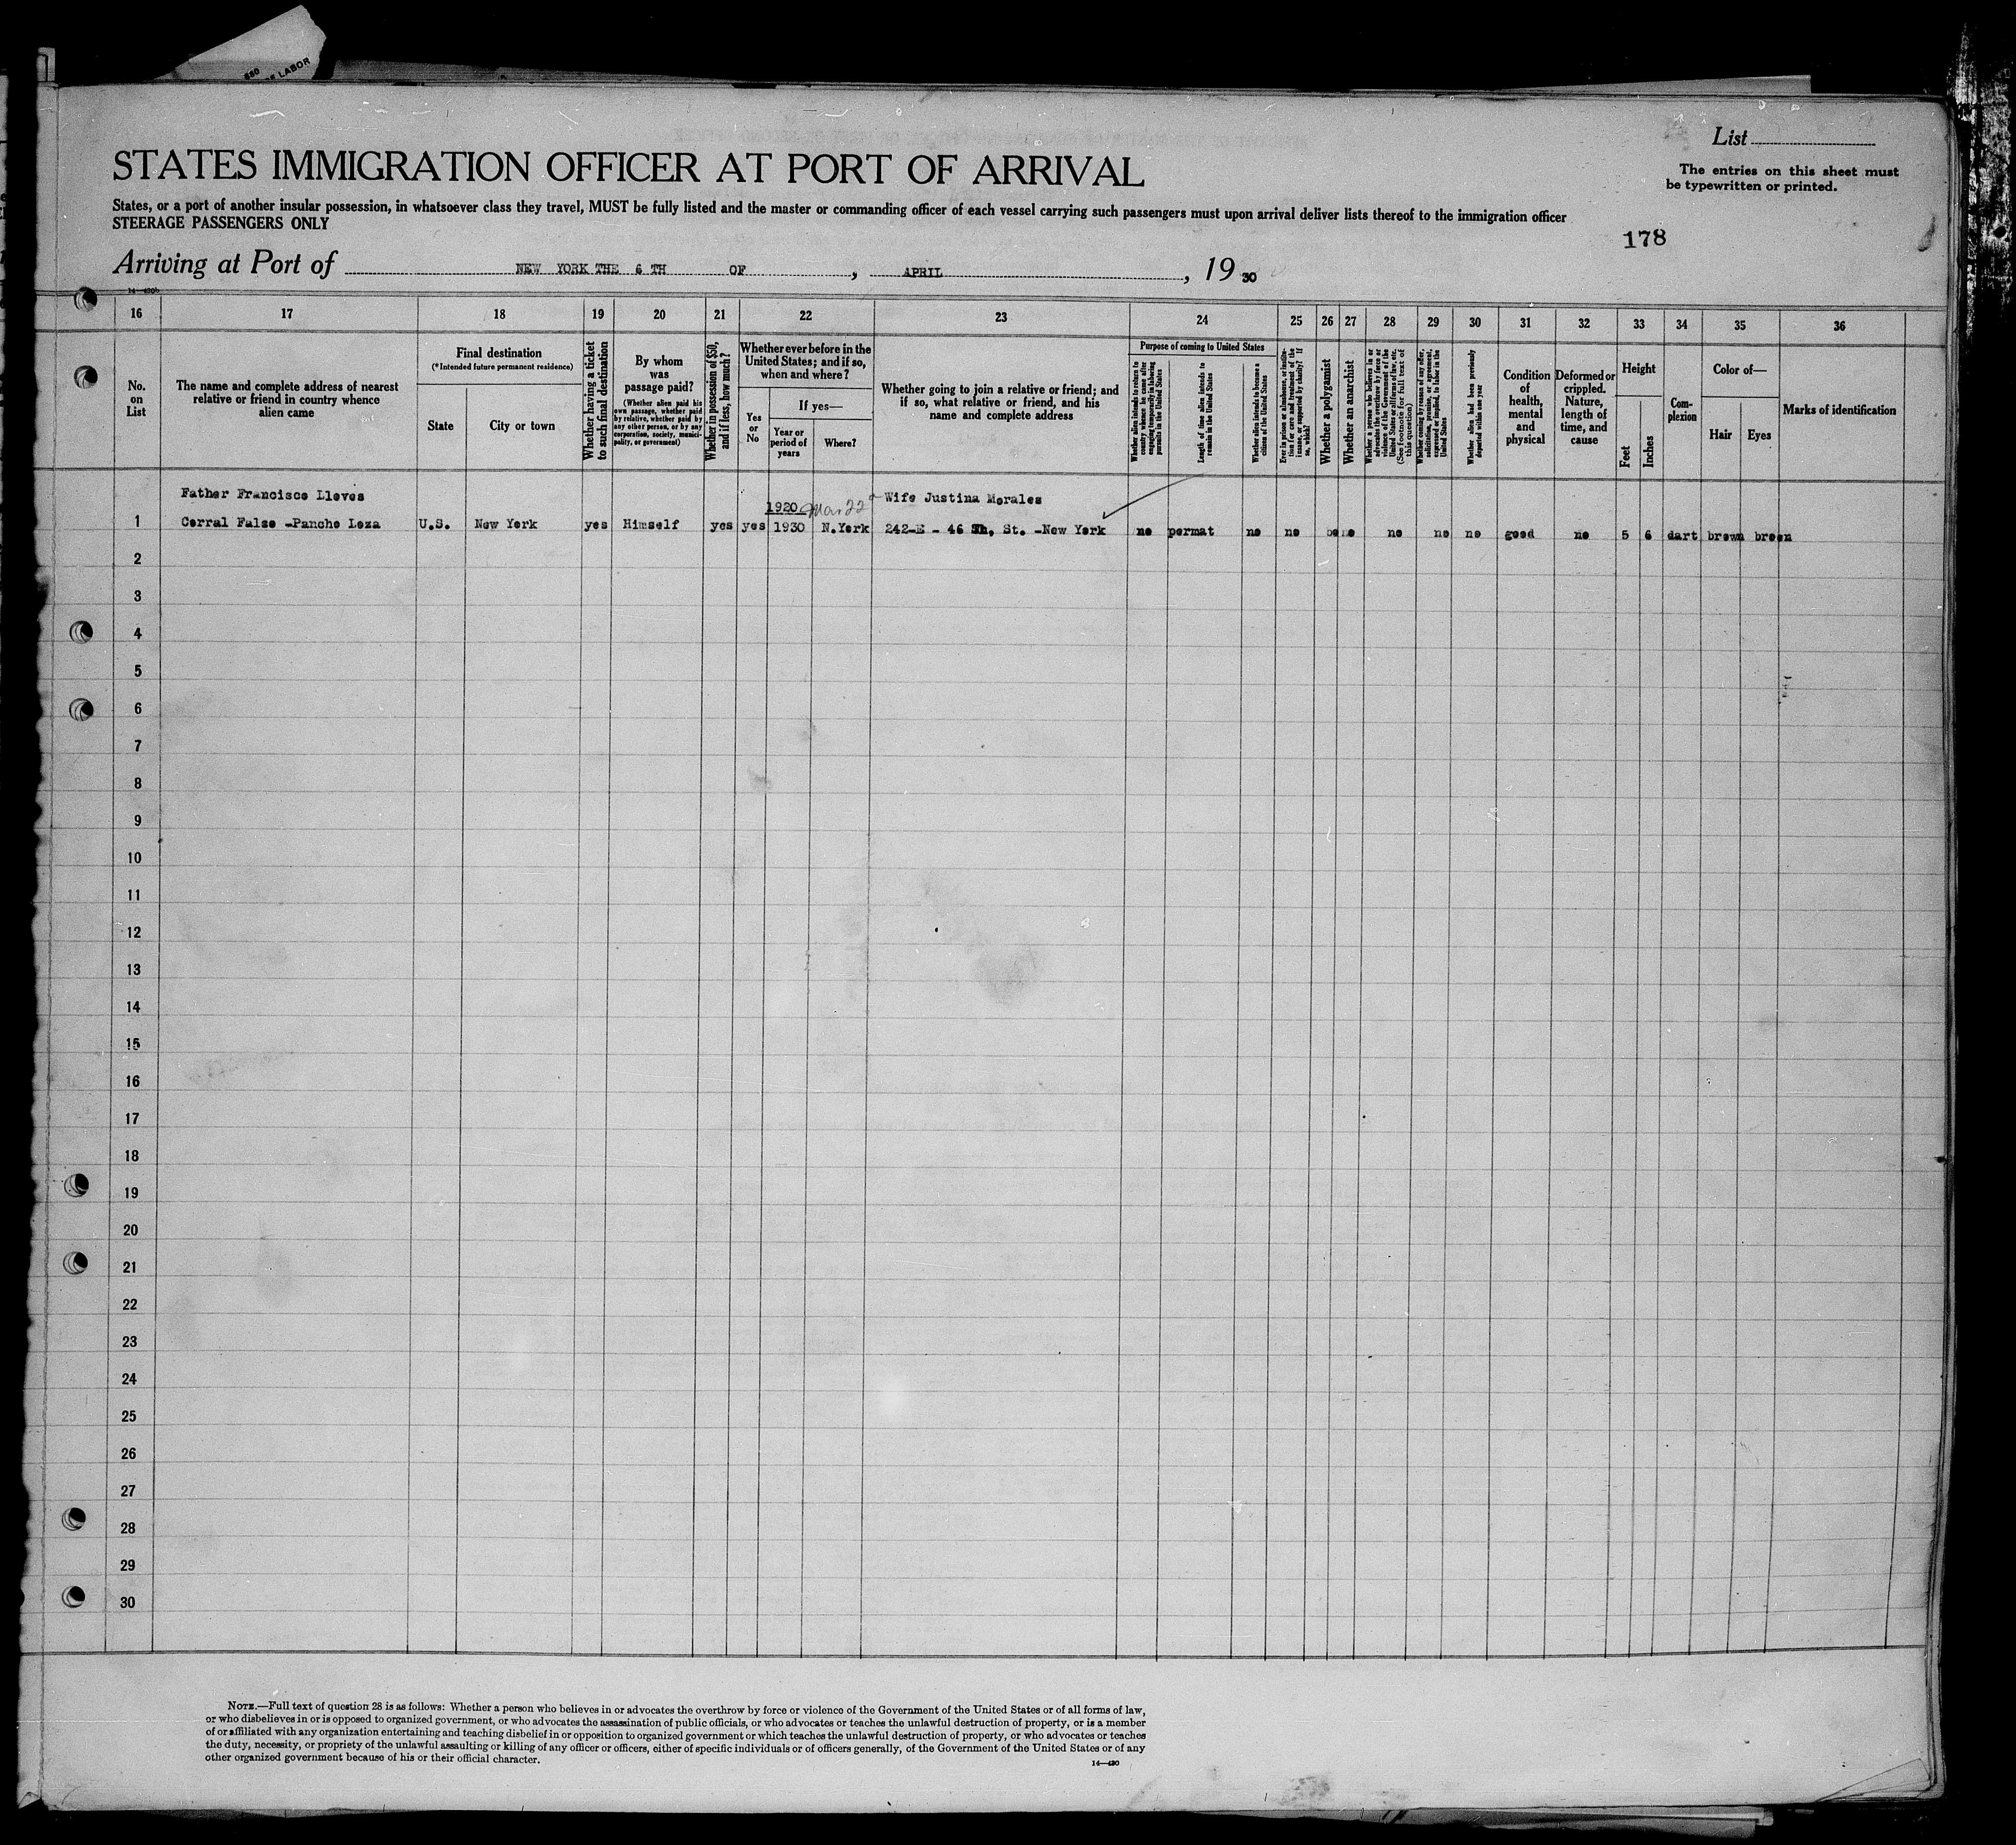 580
OF LABOR
List
STATES IMMIGRATION OFFICER AT PORT OF ARRIVAL
The entries on this sheet must
be typewritten or printed.
States, or a port of another insular possession, in whatsoever class they travel, MUST be fully listed and the master or commanding officer of each vessel carrying such passengers must upon arrival deliver lists thereof to the immigration officer
STEERAGE PASSENGERS ONLY
178
Arriving at Port of NEW YORK THE 6 TH OF, APRIL, 19 30
16 17 18 19 20 21 22 23 24 25 26 27 28 29 30 31 32 33 34 35 36
No.
on
List
The name and complete address of nearest
relative or friend in country whence
alien came
Final destination
(*Intended future permanent residence)
State
City or town
Whether having a ticket
to such final destination
By whom
was
passage paid?
(Whether alien paid his
own passage, whether paid
by relative, whether paid by
any other person, or by any
corporation, society, munici-
pality, or government)
Whether in possession of $50,
and if less, how much?
Whether ever before in the
United States; and if so,
when and where?
Yes
or
No
If yes—
Year or
period of
years
Where?
Whether going to join a relative or friend; and
if so, what relative or friend, and his
name and complete address
Purpose of coming to United States
Whether alien intends to return to
country whence he came after
engaging temporarily in laboring
pursuits in the United States
Length of time alien intends to
remain in the United States
Whether alien intends to become a
citizen of the United States
Ever in prison or almshouse, or institu-
tion for care and treatment of the
insane, or supported by charity? If
so, which?
Whether a polygamist
Whether an anarchist
Whether a person who believes in or
advocates the overthrow by force or
violence of the Government of the
United States or all forms of law, etc.
(See footnote for full text of
this question)
Whether coming by reason of any offer,
solicitation, promise, or agreement,
expressed or implied, to labor in the
United States
Whether alien had been previously
deported within one year
Condition
of
health,
mental
and
physical
Deformed or
crippled.
Nature,
length of
time, and
cause
Height
Feet
Inches
Com-
plexion
Color of—
Hair
Eyes
Marks of identification
Father Francisco Lleves 1920 Mar 22 Wife Justina Morales
1 Corral Falso -Pancho Loza U.S. New York yes Himself yes yes 1930 N.York 242-E - 46 Th, St. -New York no permat no no no no no no good no 5 6 dart brown breen
2
3
4
5
6
7
8
9
10
11
12
13
14
15
16
17
18
19
20
21
22
23
24
25
26
27
28
29
30
NOTE.—Full text of question 28 is as follows: Whether a person who believes in or advocates the overthrow by force or violence of the Government of the United States or of all forms of law,
or who disbelieves in or is opposed to organized government, or who advocates the assassination of public officials, or who advocates or teaches the unlawful destruction of property, or is a member
of or affiliated with any organization entertaining and teaching disbelief in or opposition to organized government or which teaches the unlawful destruction of property, or who advocates or teaches
the duty, necessity, or propriety of the unlawful assaulting or killing of any officer or officers, either of specific individuals or of officers generally, of the Government of the United States or of any
other organized government because of his or their official character.
14—430